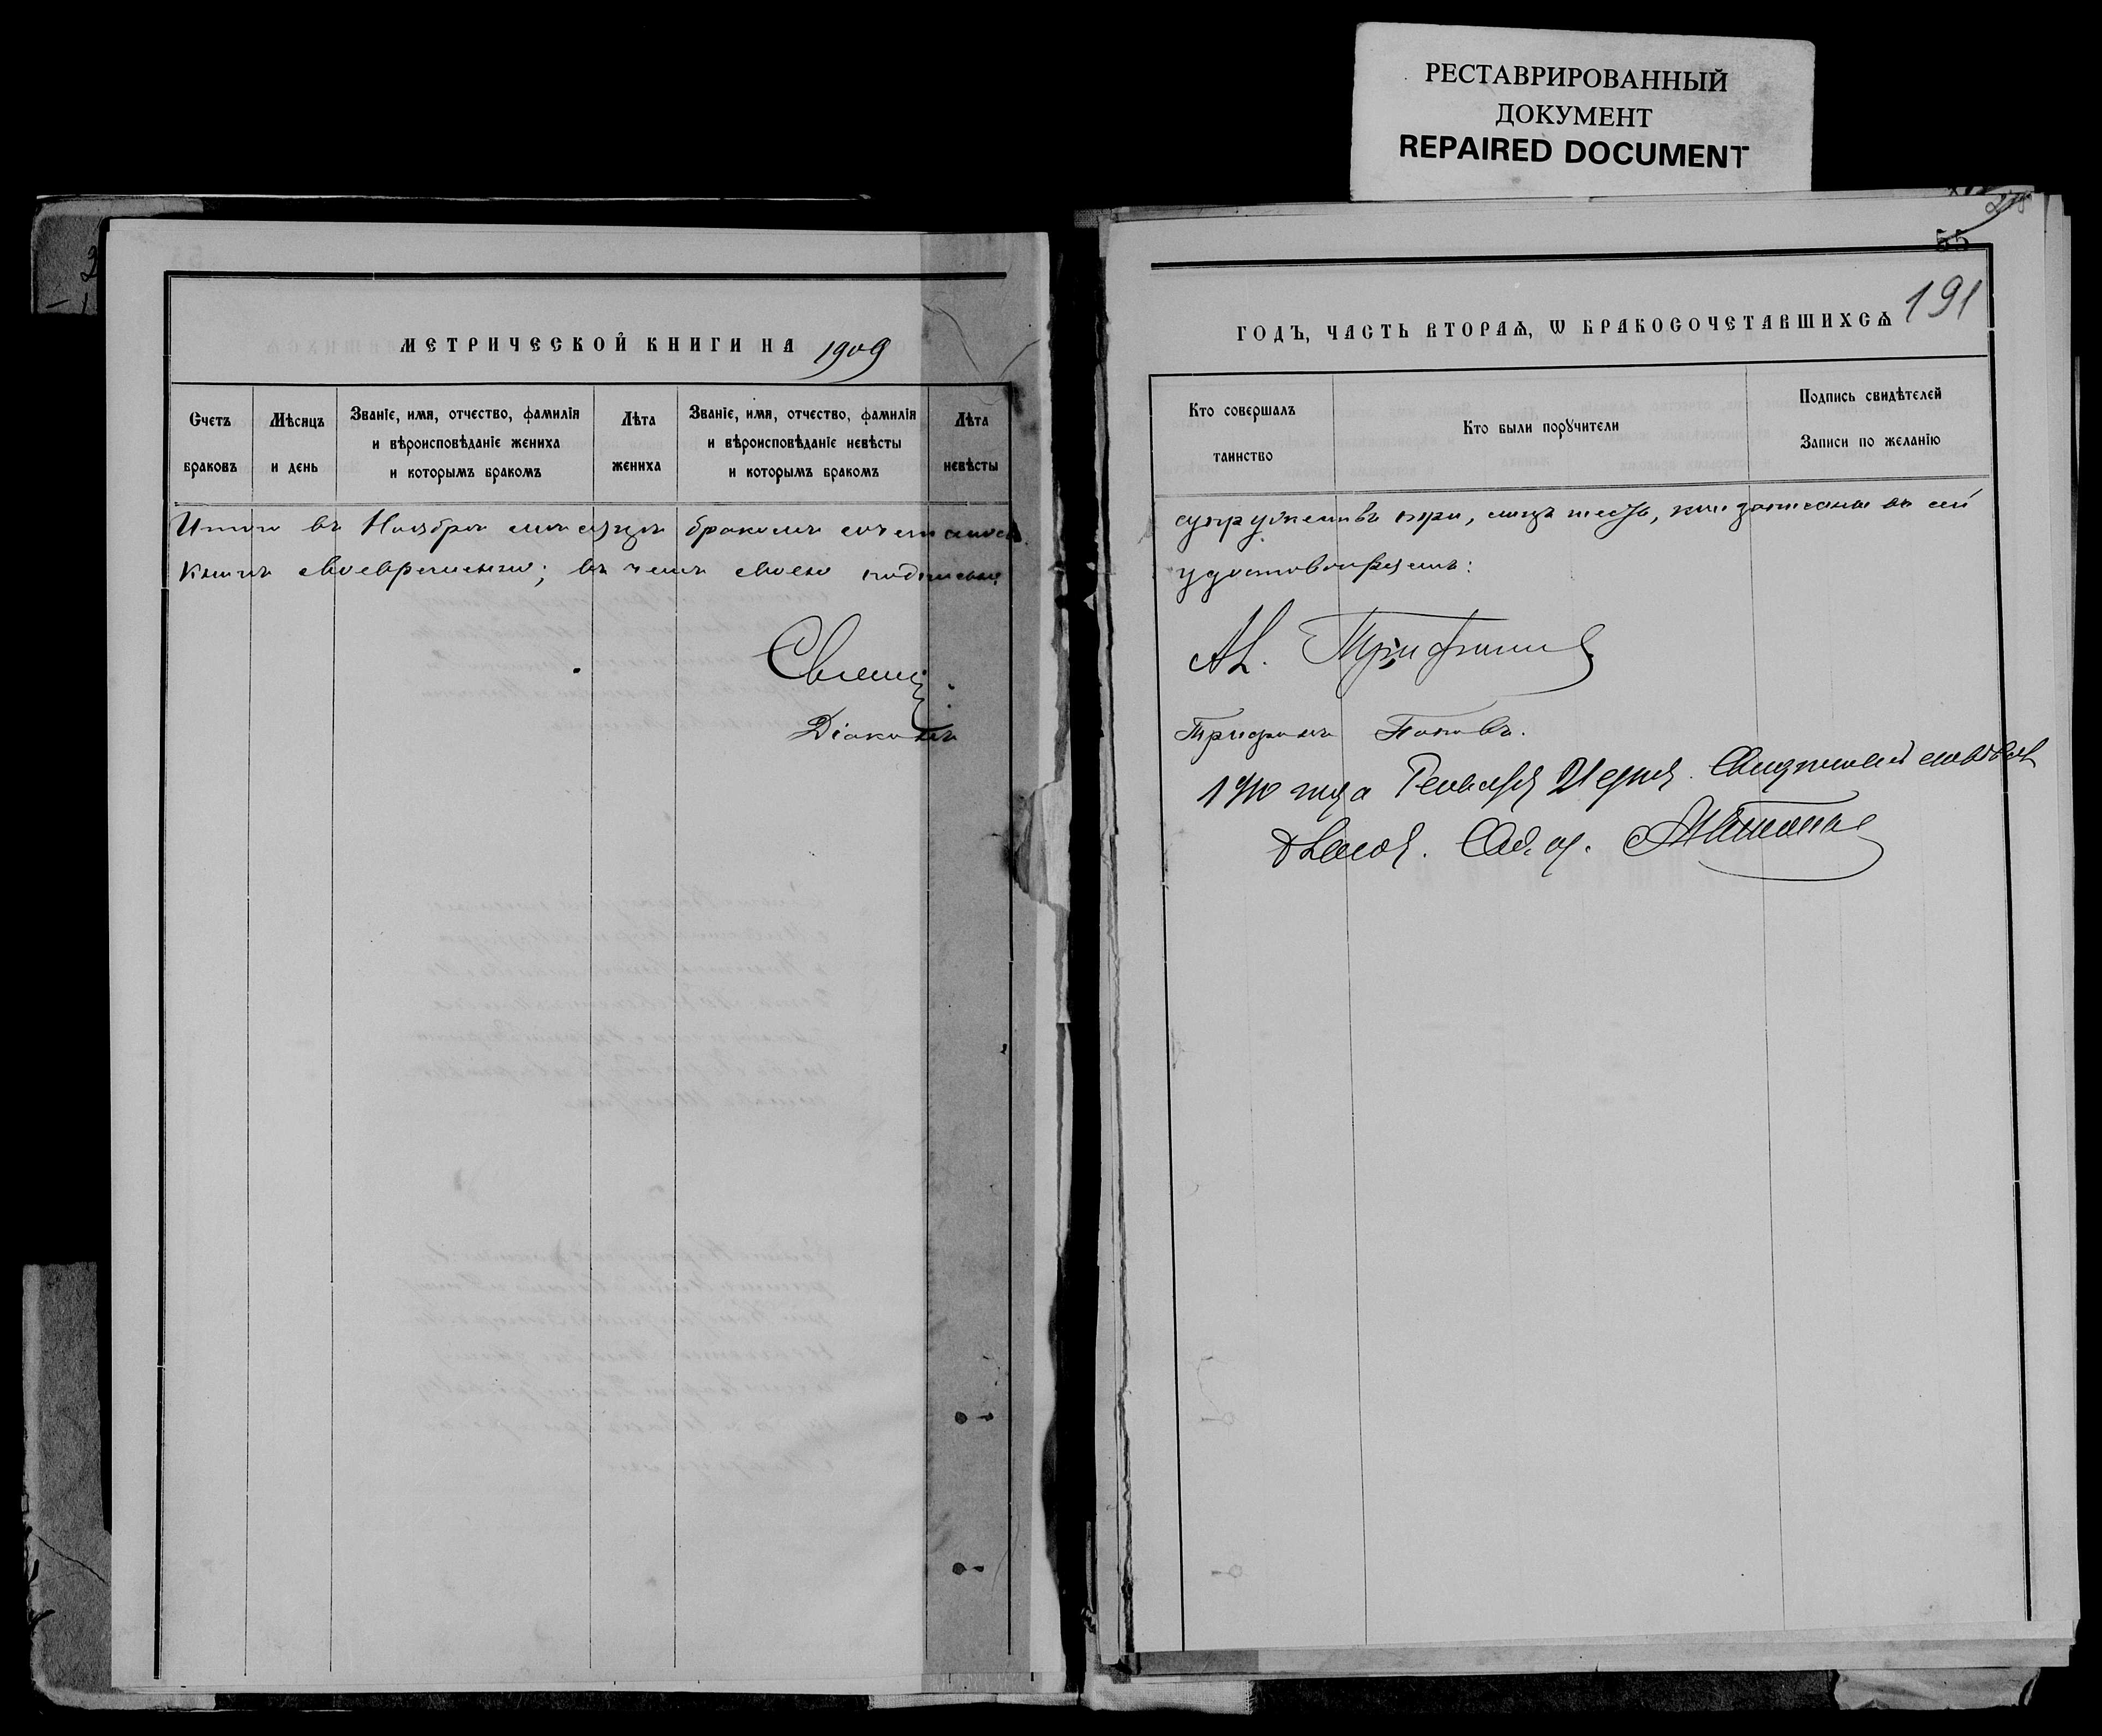 РЕСТАВРИРОВАННЫЙ
ДОКУМЕНТ
REPAIRED DOCUMENT
55
191
МЕТРИЧЕСКОЙ КНИГИ НА 1909
Счетъ браковъ
Мѣсяцъ и день
Званіе, имя, отчество, фамилія
и вѣроисповѣданіе жениха
и которымъ бракомъ
Лѣта жениха
Званіе, имя, отчество, фамилія
и вѣроисповѣданіе невѣсты
и которымъ бракомъ
Лѣта невѣсты
Итого въ Ноябрѣ мѣсяцѣ бракомъ сочеталось
книгѣ своевременно; въ чемъ своею подписью
Священ.
Діаконъ
ГОДЪ, ЧАСТЬ ВТОРАѦ, Ѡ БРАКОСОЧЕТАВШИХСѦ
Кто совершалъ
таинство
Кто были порꙋчители
Подпись свидѣтелей
Записи по желанію
супружествъ три, лицъ шесть, кои записаны въ сей
удостовѣряемъ:
Трифонъ Поповъ.
1910 года Генваря 21 дня.